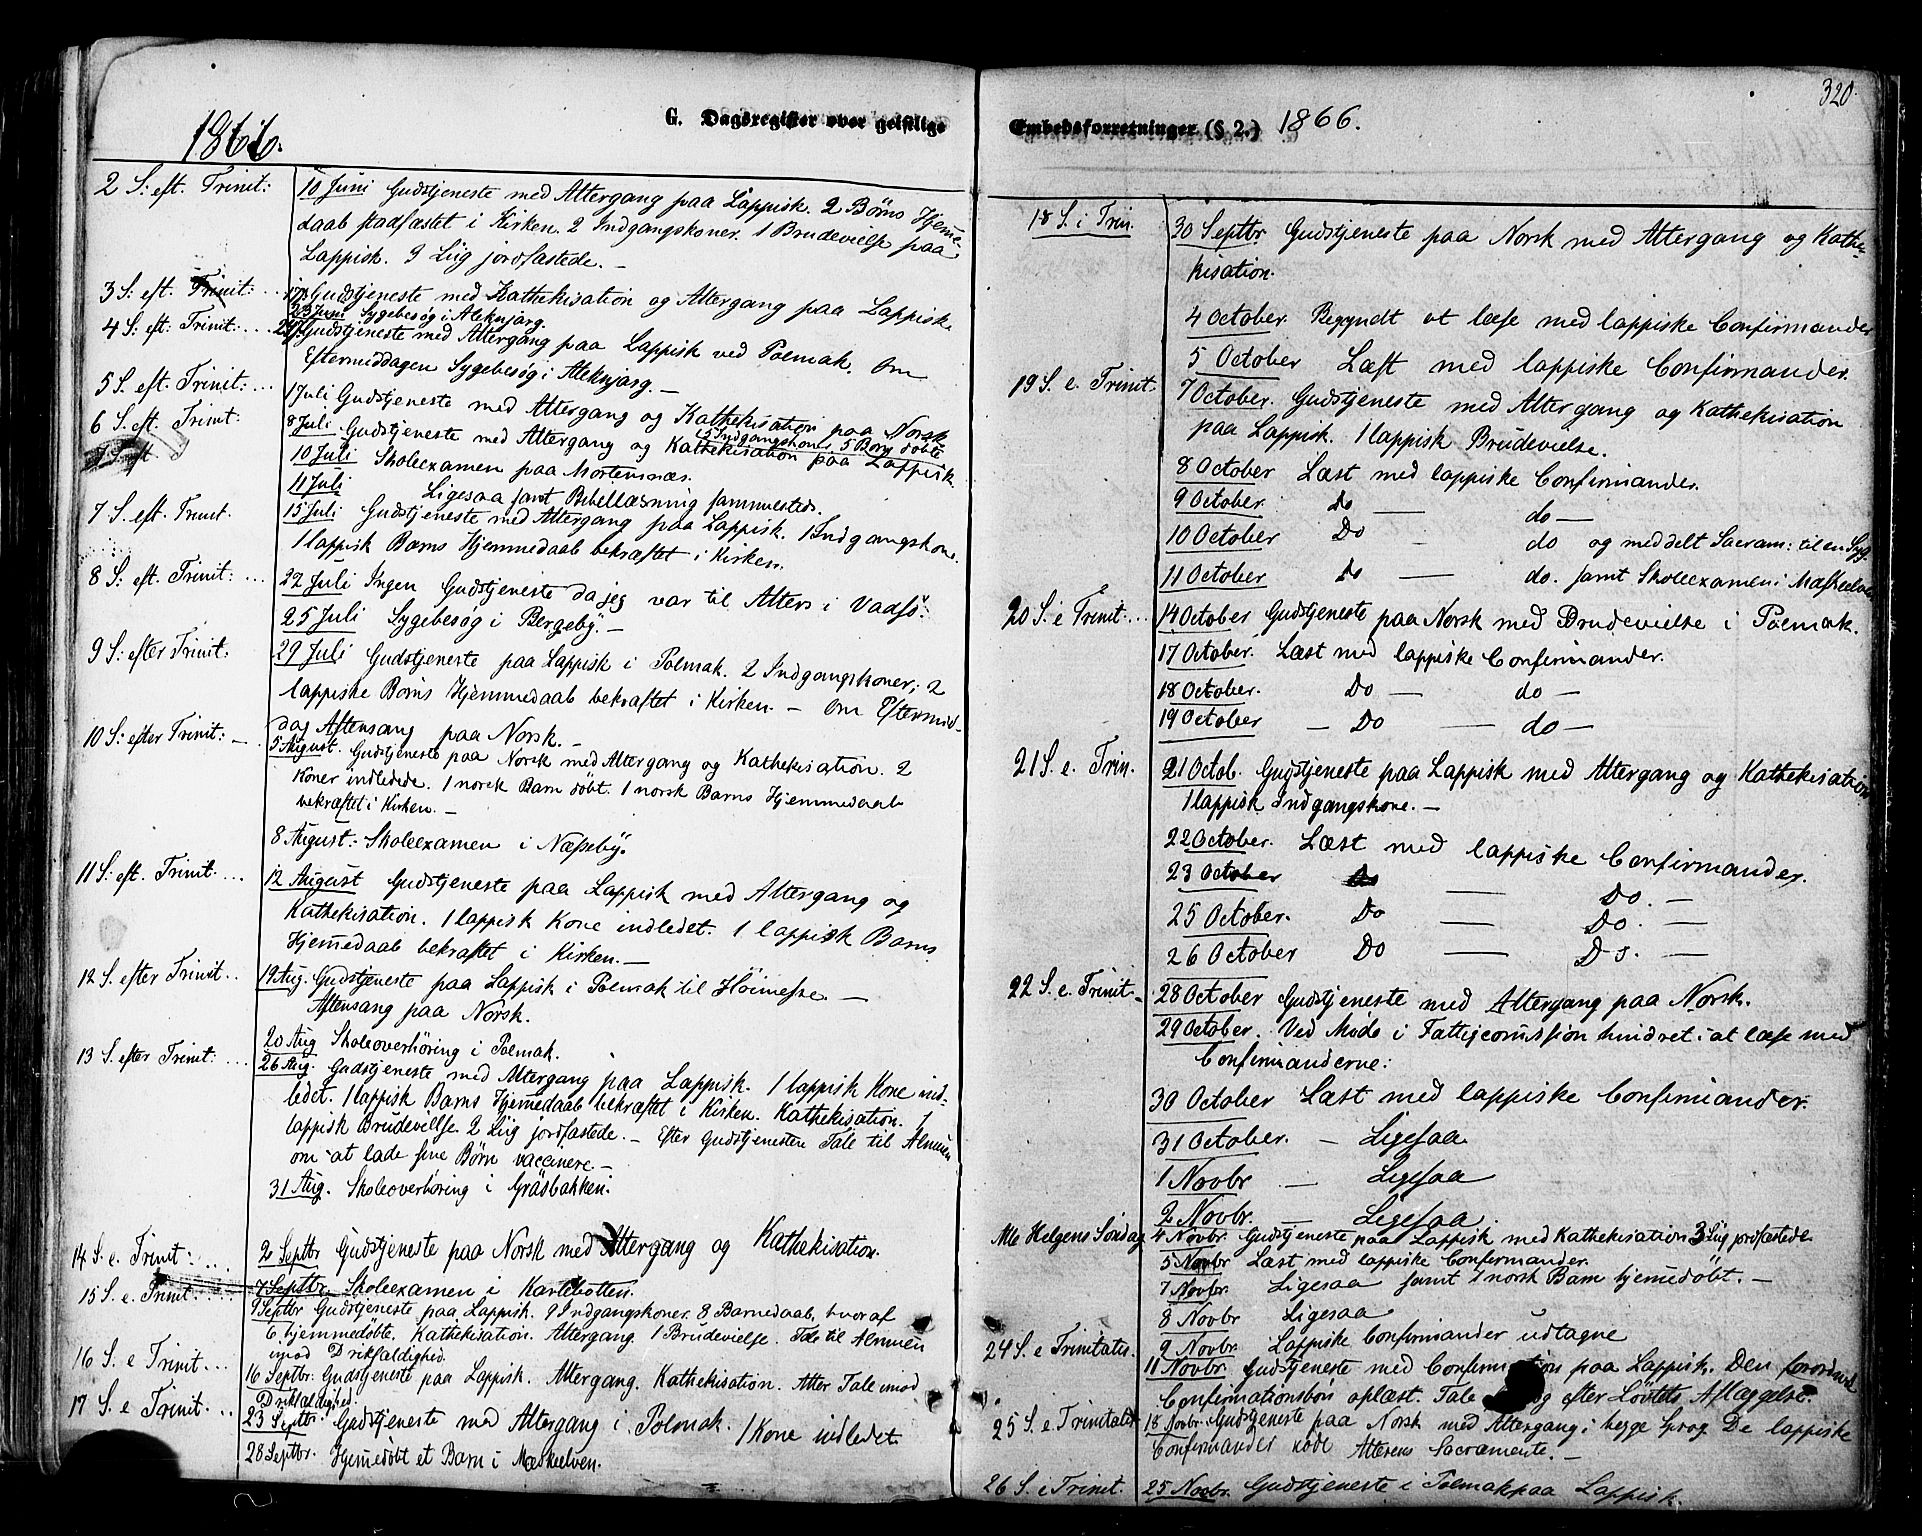 G. Dagsregister over geistlige
1866.
2 S: eft. Trinit: 10 Juni Gudstjeneste med Altergang paa Lappisk. 2 Børns Hjemme-
daab stadfæstet i Kirken. 2 Indgangskoner. 1 Brudevielse paa
Lappisk. 9 Liig jordfæstede. —
3 S: eft. Trinit: ... 17/6 Gudstjeneste med Kathekisation og Altergang paa Lappisk.
23 Juni Sygebesøg i Aleknjarg.
4 S: eft: Trinit: ... 24/6 Gudstjeneste med Altergang paa Lappisk ved Polmak. Om
Eftermiddagen Sygebesøg i Aleknjarg. —
5 S. eft. Trinit: ... 1 Juli Gudstjeneste med Altergang og Kathekisation paa Norsk
6 S. eft. Trinit: 8 Juli Gudstjeneste med Altergang og Kathekisation paa Lappisk
5 Indgangskoner 5 Børn døbte
10 Juli Skoleexamen paa Mortensnæs.
11 Juli Ligesaa samt Bibellæsning sammesteds.
7 S. eft. Trinit. 15 Juli Gudstjeneste med Altergang paa Lappisk. 1 Indgangskone.
1 lappisk Barns Hjemmedaab bekræftet i Kirken.
8 S: eft. Trinit: ... 22 Juli Ingen Gudstjeneste da jeg var til Alters i Vadsö.
25 Juli Sygebesøg i Bergeby. —
9 S: efter Trinit: 29 Juli Gudstjeneste paa Lappisk i Polmak. 2 Indgangskoner; 2
lappiske Børns Hjemmedaab bekræftet i Kirken. — Om Eftermid-
dag Aftensang paa Norsk. —
10 S: efter Trinit: — 5 August. Gudstjeneste paa Norsk med Altergang og Kathekisation. 2
Koner indledede. 1 norsk Barn döbt. 1 norsk Barns Hjemmedaab
bekræftet i Kirken. —
8 August: Skoleexamen i Næsseby.
11 S: eft. Trinit ... 12 August Gudstjeneste paa Lappisk med Altergang og
Kathekisation. 1 lappisk Kone indledet. 1 lappisk Barns
Hjemedaab bekræftet i Kirken. —
12 S. efter Trinit ... 19 Aug. Gudstjeneste paa Lappisk i Polmak til Höimesse. —
Aftensang paa Norsk.
20 Aug Skoleoverhöring i Polmak.
13 S. efter Trinit: ... 26 Aug. Gudstjeneste med Altergang paa Lappisk. 1 lappisk Kone ind-
ledet. 1 lappisk Barns Hjemedaab bekræftet i Kirken. Kathekisation. 1
lappisk Brudevielse. 2 Liig jordfæstede. — Efter Gudstjenesten Tale til Almuen
om at lade sine Børn vaccinere. —
31 Aug. Skoleoverhöring i Gräsbakken.
14 S. e. Trinit: ... 2 Septbr Gudstjeneste paa Norsk med Altergang og Kathekisation.
7 Septbr. Skoleexamen i Karlebotten.
15 S. e. Trinit: ... 9 Septbr Gudstjeneste paa Lappisk. 9 Indgangskoner. 8 Barnedaab, hvoraf
6 hjemmedøbte. Kathekisation. Altergang. 1 Brudevielse. Tale til Almuen
imod Drikfældighed.
16 S. e Trinit ... 16 Septbr. Gudstjeneste paa Lappisk. Altergang. Kathekisation. Atter Tale imod
Drikfældighed.
17 S. e Trinit ... 23 Septbr. Gudstjeneste med Altergang i Polmak. 1 Kone indledet
28 Septbr. Hjemedöbt et Barn i Mæskelven.
320.
Embedsforretninger (§ 2.) 1866.
18 S. i Trin. 30 Septbr Gudstjeneste paa Norsk med Altergang og Kathe-
kisation.
4 October. Begyndt at læse med lappiske Confirmander
5 October Læst med lappiske Confirmander.
19 S. e. Trinit. 7 October. Gudstjeneste med Altergang og Kathekisation
paa Lappisk. 1 lappisk Brudevielse.
8 October Læst med lappiske Confirmander.
9 October. Do — do —
10 October Do — do og meddelt Sacram: til en Syg.
11 October Do — do. samt Skoleexamen i Mæskelven
20 S. e Trinit: ... 14 October Gudstjeneste paa Norsk med Brudevielse i Polmak.
17 October. Læst med lappiske Confirmander.
18 October. Do — do —
19 October — Do — do —
21 S. e. Trin. 21 Octob. Gudstjeneste paa Lappisk med Altergang og Kathekisation
1 lappisk Indgangskone. —
22 October. Læst med lappiske Confirmander.
23 October Do — Do. —
25 October. Do — Do. —
26 October Do — Do. —
22 S. e. Trinit. — 28 October Gudstjeneste med Altergang paa Norsk.
29 October. Ved Møde i Fattigcomission hindret at læse med
Confirmanderne:
30 October Læst med lappiske Confirmander.
31 October. — Ligesaa
1 Novbr — Ligesaa
2 Novbr. — Ligesaa.
Alle Helgens Söndag 4 Novbr. Gudstjeneste paa Lappisk med Kathekisation 3 Liig jordfæstede
5 Novbr Læst med lappiske Confirmander.
7 Novbr. Ligesaa samt 1 norsk Barn hjemedöbt. —
8 Novbr Ligesaa
9 Novbr. Lappiske Confirmander udtagne
24 S. e Trinitatis. 11 Novbr. Gudstjeneste med Confirmations paa Lappisk. Den forordnede
Confirmationsbön oplæst. Tale og efter Löftets Aflæggelse.
25 S. e Trinitatis 18 Novbr. Gudstjeneste paa Norsk med Altergang i begge Sprog De lappiske
Confirmander nöde Alterens Sacramente. —
26 S. i Trinit. 25 Novbr. Gudstjeneste i Polmak paa Lappisk.